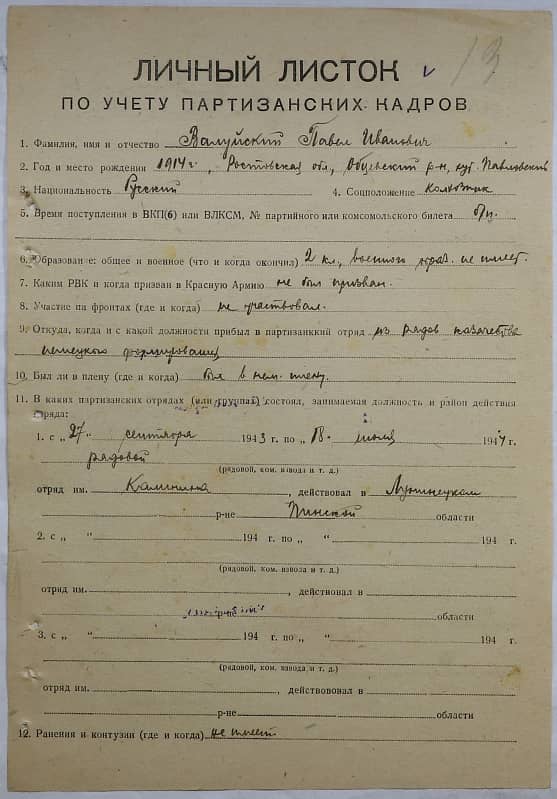 13
ЛИЧНЫЙ ЛИСТОК
ПО УЧЕТУ ПАРТИЗАНСКИХ КАДРОВ
1. Фамилия, имя и отчество Валуйский Павел Иванович
2. Год и место рождения 1914 г, Ростовская обл, р-н, хут. Павловский
3. Национальность Русский 4. Соцположение колхозник
5. Время поступления в ВКП(б) или ВЛКСМ, № партийного или комсомольского билета б/п.
6. Образование: общее и военное (что и когда окончил) 2 кл., военного образ. не имеет.
7. Каким РВК и когда призван в Красную Армию не был призван.
8. Участие на фронтах (где и когда) не участвовал.
9. Откуда, когда и с какой должности прибыл в партизанкий отряд из рядов казачества
немецкого формирования
10. Был ли в плену (где и когда) был в нем. плену.
11. В каких партизанских отрядах (или группах) состоял, занимаемая должность и район действия
отряда:
1. с „27" сентября 1943 г. по „18" июля 1944 г.
рядовой
(рядовой, ком. взвода и т. д.)
отряд им. Калинина, действовал в Лунинецком
р-не Пинской области
2. с „ " 194 г. по „ " 194 г.
(рядовой, ком. взвода и т. д.)
отряд им. , действовал в
области
3. с „ " 194 г. по „ " 194 г.
(рядовой, ком. взвода и т. д.)
отряд им. , действововал в
р-не области
12. Ранения и контузии (где и когда) не имеет